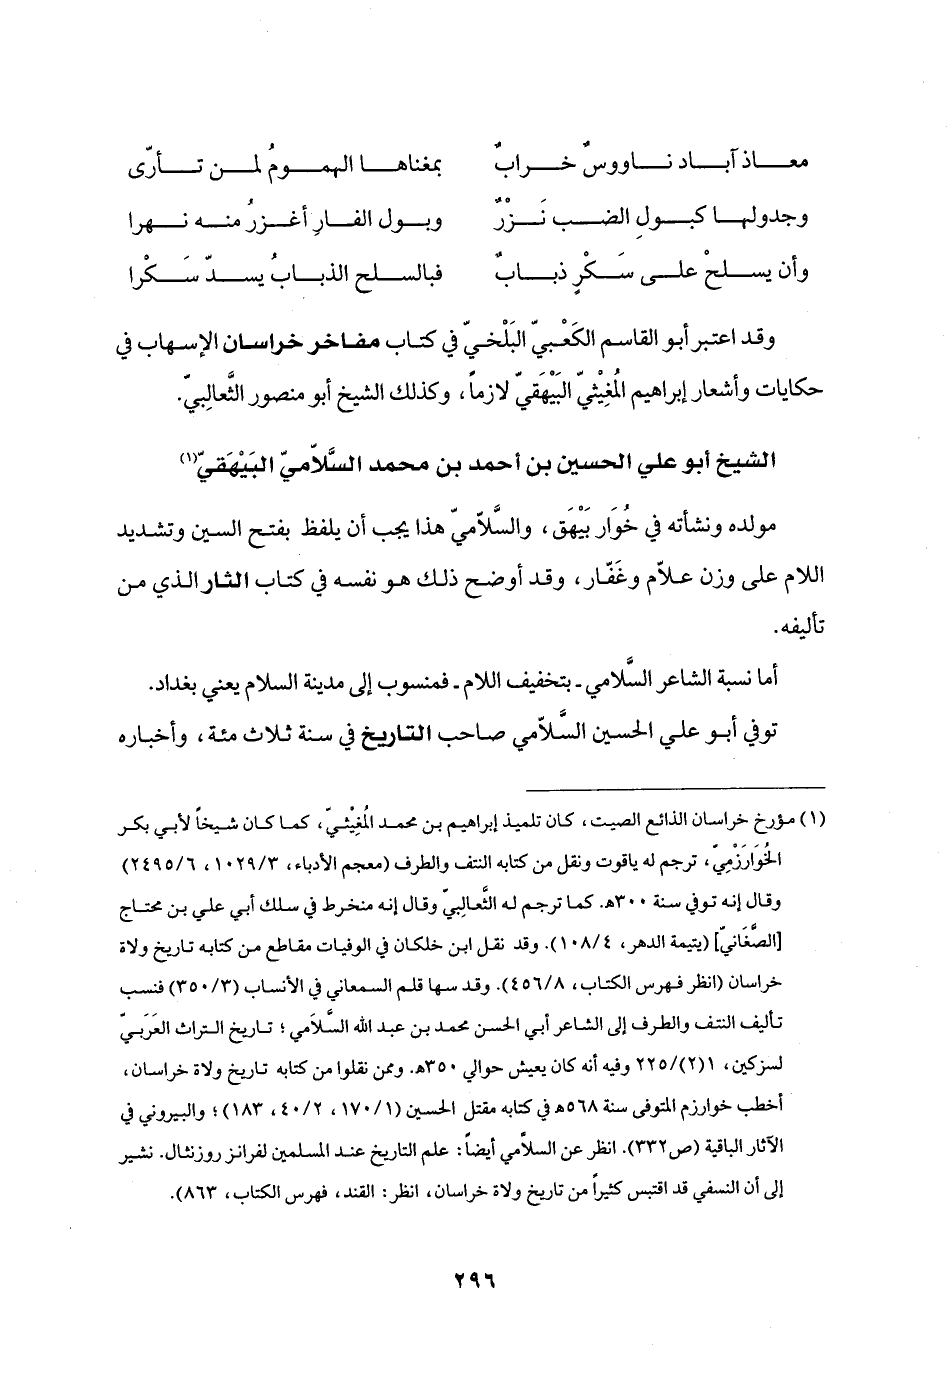 معاذ آباد ناووسٌ خرابٌ بمغناها الهمومُ لمن تأرّى
وجدولها كبول الضب نَزْرٌ وبول الفارِ أغزرُ منه نهرا
وأن يسلحْ على سَكْرٍ ذبابٌ فبالسلح الذبابُ يسدّ سَكْرا
وقد اعتبر أبو القاسم الكَعْبيّ البَلْخيّ في كتاب مفاخر خراسان الإسهاب في
حكايات وأشعار إبراهيم المُغِيْثيّ البَيْهَقيّ لازماً، وكذلك الشيخ أبو منصور الثَّعالبيّ.
الشيخ أبو علي الحسين بن أحمد بن محمد السَّلاّميّ البَيْهَقيّ(١)
مولده ونشأته في خُوَار بَيْهَق، والسَّلاّميّ هذا يجب أن يلفظ بفتح السين وتشديد
اللام على وزن علاّم وغَفّار، وقد أوضح ذلك هو نفسه في كتاب الثار الذي من
تأليفه.
أما نسبة الشاعر السَّلامي ـ بتخفيف اللام ـ فمنسوب إلى مدينة السلام يعني بغداد.
توفي أبو علي الحسين السَّلاّمي صاحب التاريخ في سنة ثلاث مئة، وأخباره
(١) مؤرخ خراسان الذائع الصيت، كان تلميذ إبراهيم بن محمد المُغِيْثيّ، كما كان شيخاً لأبي بكر
الخُوَارَزْميّ، ترجم له ياقوت ونقل من كتابه النتف والطرف (معجم الأدباء، ١٠٢٩/٣، ٢٤٩٥/٦)
وقال إنه توفي سنة ٣٠٠هـ. كما ترجم له الثَّعالبيّ وقال إنه منخرط في سلك أبي علي بن محتاج
[الصَّغَانيّ] (يتيمة الدهر، ١٠٨/٤). وقد نقل ابن خلكان في الوفيات مقاطع من كتابه تاريخ ولاة
خراسان (انظر فهرس الكتاب، ٤٥٦/٨). وقد سها قلم السمعاني في الأنساب (٣٥٠/٣) فنسب
تأليف النتف والطرف إلى الشاعر أبي الحسن محمد بن عبد الله السَّلاَمي؛ تاريخ التراث العَرَبيّ
لسزكين، ١(٢)/٢٢٥ وفيه أنه كان يعيش حوالي ٣٥٠هـ. وممن نقلوا من كتابه تاريخ ولاة خراسان،
أخطب خوارزم المتوفى سنة ٥٦٨هـ في كتابه مقتل الحسين (١٧٠/١، ٤٠/٢، ١٨٣)؛ والبيروني في
الآثار الباقية (ص٣٣٢). انظر عن السلاّمي أيضاً: علم التاريخ عند المسلمين لفرانز روزنثال. نشير
إلى أن النسفي قد اقتبس كثيراً من تاريخ ولاة خراسان، انظر: القند، فهرس الكتاب، ٨٦٣).
٢٩٦